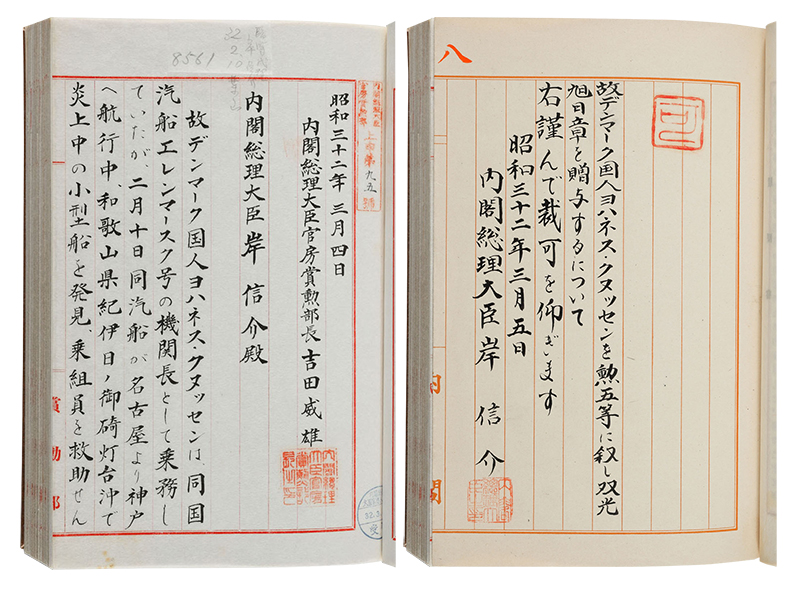 八
可
故デンマーク国人ヨハネス・クヌッセンを勲五等に叙し双光
旭日章を贈与するについて
右謹んで裁可を仰ぎます
昭和三十二年三月五日
内閣総理大臣岸信介
内閣
8561
32.2.10
上申第九五号
昭和三十二年三月四日
内閣総理大臣官房賞勲部長吉田威雄
内閣総理大臣岸信介殿
故デンマーク国人ヨハネス・クヌッセンは、同国
汽船エレンマースク号の機関長として乗務し
ていたが、二月十日同汽船が名古屋より神戸
へ航行中、和歌山県紀伊日ノ御碕灯台沖で
炎上中の小型船を発見、乗組員を救助せん
賞勲部